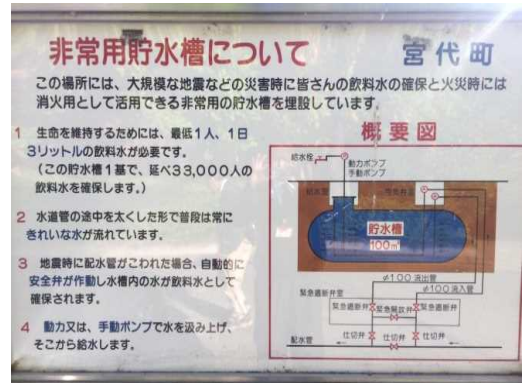 非常用貯水槽について
宮代町
この場所には、大規模な地震などの災害時に皆さんの飲料水の確保と火災時には
消火用として活用できる非常用の貯水槽を埋設しています。
1 生命を維持するためには、最低1人、1日
3リットルの飲料水が必要です。
(この貯水槽1基で、延べ33,000人の
飲料水を確保します。)
2 水道管の途中を太くした形で普段は常に
きれいな水が流れています。
3 地震時に配水管がこわれた場合、自動的に
安全弁が作動し水槽内の水が飲料水として
確保されます。
4 動力又は、手動ポンプで水を汲み上げ、
そこから給水します。
概要図
給水栓
動力ポンプ
手動ポンプ
貯水槽
100㎥
φ100流出管
φ100流入管
緊急遮断弁室
緊急遮断弁
緊急遮断弁
配水管
仕切弁
仕切弁
仕切弁